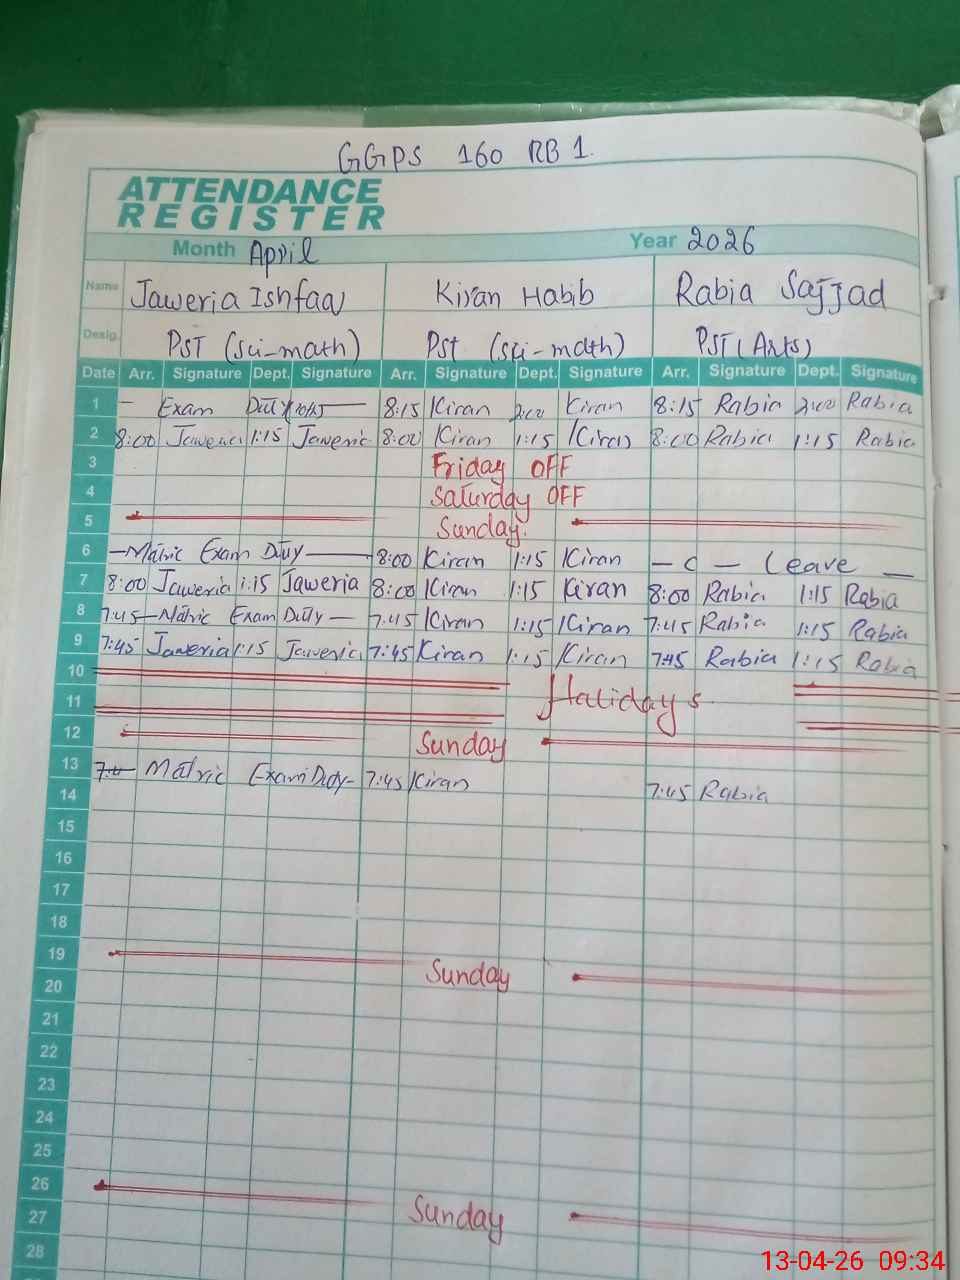 GGPS 160 RB 1.
ATTENDANCE
REGISTER
Month April Year 2026
Name Jaweria Ishfaq Kiran Habib Rabia Sajjad
Desig. PST (Sci-math) Pst (sci-math) PST (Arts)
Date Arr. Signature Dept. Signature Arr. Signature Dept. Signature Arr. Signature Dept. Signature
1 — Exam Duty 8:15 Kiran 2:00 Kiran 8:15 Rabia 2:00 Rabia
2 8:00 Jaweria 1:15 Jaweria 8:00 Kiran 1:15 Kiran 8:00 Rabia 1:15 Rabia
3 Friday OFF
4 Saturday OFF
5 Sunday.
6 — Matric Exam Duty — 8:00 Kiran 1:15 Kiran — C — Leave —
7 8:00 Jaweria 1:15 Jaweria 8:00 Kiran 1:15 Kiran 8:00 Rabia 1:15 Rabia
8 7:45 — Matric Exam Duty — 7:45 Kiran 1:15 Kiran 7:45 Rabia 1:15 Rabia
9 7:45 Jaweria 1:15 Jaweria 7:45 Kiran 1:15 Kiran 7:45 Rabia 1:15 Rabia
10
11 Halidays
12 Sunday
13 Matric Exam Duty - 7:45 Kiran 7:45 Rabia
14
15
16
17
18
19 Sunday
20
21
22
23
24
25
26 Sunday
27
28
13-04-26 09:34